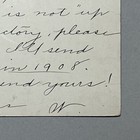 is not "up
ctory, please
I'll send
in 1908.
end yours!
s W